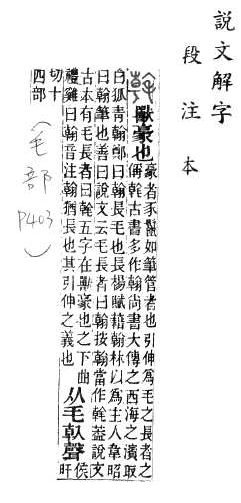 說文解字
段注本
獸豪也
豪者豕鬣如筆管者也引伸爲毛之長者之
偁古書多作翰尚書大傳之西海之濱取
白狐青翰鄭曰翰長毛也長楊賦藉翰林以爲主人韋昭
曰翰筆也善曰說文云毛長者曰翰按翰當作葢說文
古本有毛長者曰五字在獸豪也之下曲
禮雞曰翰音注翰猶長也其引伸之義也
从毛倝聲
侯
旰
切十
四部
(毛部 P403)